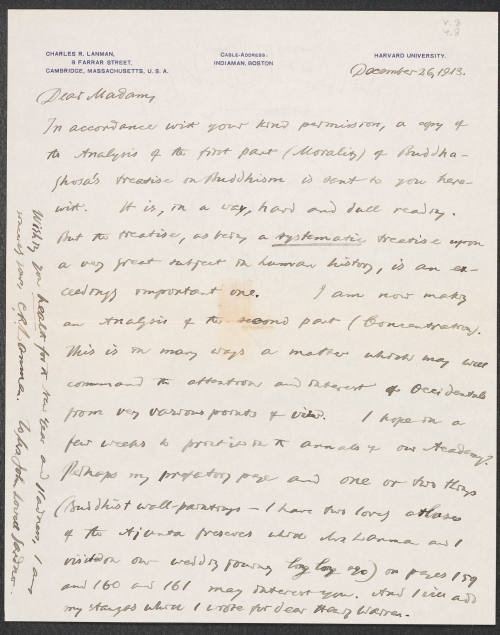 V. 8
4.8
CHARLES R. LANMAN,
9 FARRAR STREET,
CAMBRIDGE, MASSACHUSETTS, U. S. A.
CABLE-ADDRESS:
INDIAMAN, BOSTON
HARVARD UNIVERSITY.
December 26, 1913.
Dear Madam,
In accordance with your kind permission, a copy of
the Analysis of the first part (Morality) of Buddha-
ghosa's treatise on Buddhism is sent to you here-
with. It is, in a way, hard and dull reading.
But the treatise, as being a systematic treatise upon
a very great subject in human history, is an ex-
ceedingly important one. I am now making
an Analysis of the second part (Concentration).
This is in many ways a matter which may well
command the attention and interest of Occidentals
from very various points of view. I hope in a
few weeks to print it in the annals of our Academy.
Perhaps my prefatory page and one or two things
(Buddhist wall-paintings — I have two lovely
of the Ajanta frescoes which Mrs Lanman and I
visited on our wedding journey long long ago) on pages 159
and 160 and 161 may interest you. And I will add
my stanzas which I wrote for dear Henry Warren.
Wishing you health for the New Year and I am
sincerely yours C.R. Lanman. To Mrs John Lowell Gardner.